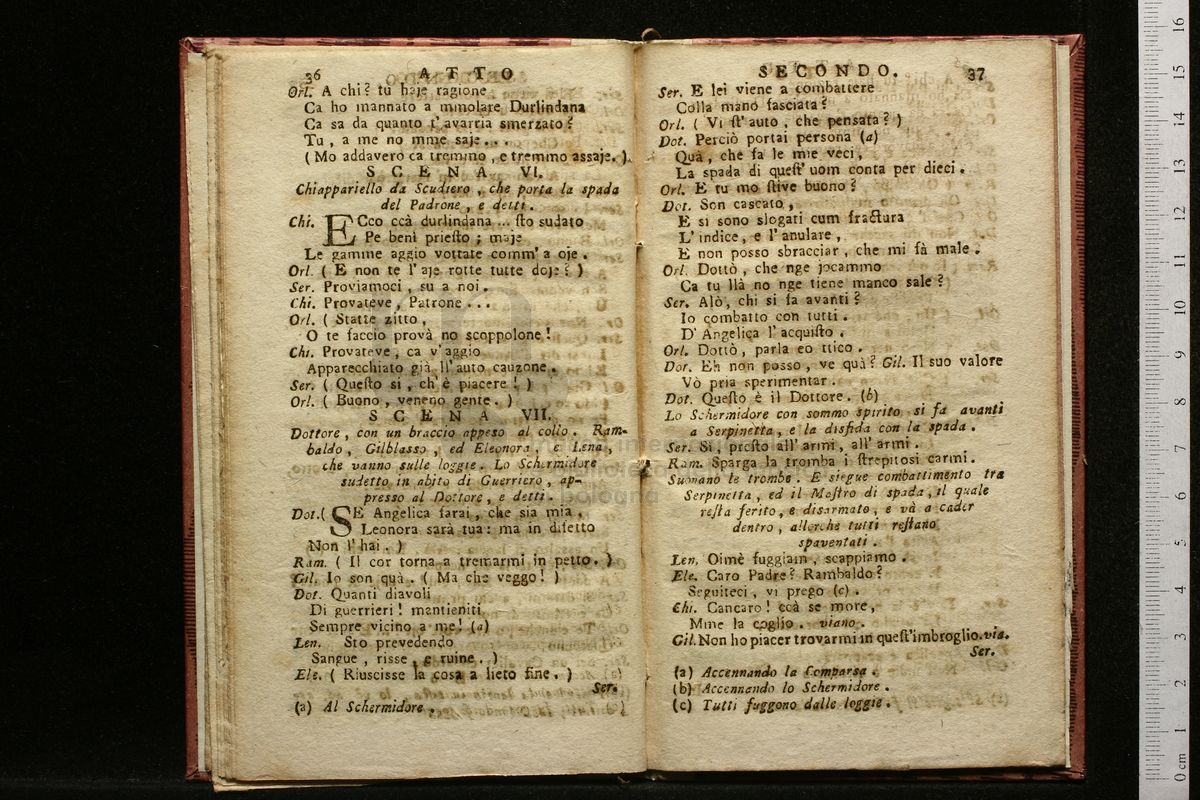 36 ATTO
Orl. A chi? tu haje ragione
Ca ho mannato a mmolare Durlindana
Ca sa da quanto t'avarria smerzato?
Tu, a me no mme saje...
(Mo addavero ca tremmo, e tremmo assaje.)
SCENA VI.
Chiappariello da Scudiero, che porta la spada
del Padrone, e detti.
Chi. ECco ccà durlindana ... sto sudato
Pe beni priesto; maje
Le gamme aggio vottate comm'a oje.
Orl. (E non te l'aje rotte tutte doje?)
Ser. Proviamoci, su a noi.
Chi. Provateve, Patrone...
Orl. (Statte zitto,
O te faccio provà no scoppolone!
Chi. Provateve, ca v'aggio
Apparecchiato già ll'auto cauzone.
Ser. (Questo si, ch'è piacere!)
Orl. (Buono, veneno gente.)
SCENA VII.
Dottore, con un braccio appeso al collo. Ram-
baldo, Gilblasso, ed Eleonora, e Lena,
che vanno sulle loggie. Lo Schermidore
sudetto in abito di Guerriero, ap-
presso al Dottore, e detti.
Dot. (SE Angelica sarai, che sia mia,
Leonora sarà tua: ma in difetto
Non l'hai.)
Ram. (Il cor torna a tremarmi in petto.)
Gil. Io son quà. (Ma che veggo!)
Dot. Quanti diavoli
Di guerrieri! mantieniti
Sempre vicino a me! (a)
Len. Sto prevedendo
Sangue, risse, e ruine.)
Ele. (Riuscisse la cosa a lieto fine.)
Ser.
(a) Al Schermidore.
SECONDO. 37
Ser. E lei viene a combattere
Colla mano fasciata?
Orl. (Vi st'auto, che pensata?)
Dot. Perciò portai persona (a)
Quà, che fa le mie veci,
La spada di quest'uom conta per dieci.
Orl. E tu mo stive buono?
Dot. Son cascato,
E si sono slogati cum fractura
L'indice, e l'anulare,
E non posso sbracciar, che mi fà male.
Orl. Dottò, che nge jocammo
Ca tu llà no nge tiene manco sale?
Ser. Alò, chi si fa avanti?
Io combatto con tutti.
D'Angelica l'acquisto.
Orl. Dottò, parla co ttico.
Dot. Eh non posso, ve quà? Gil. Il suo valore
Vò pria sperimentar.
Dot. Questo è il Dottore. (b)
Lo Schermidore con sommo spirito si fa avanti
a Serpinetta, e la disfida con la spada.
Ser. Si, presto all'armi, all'armi.
Ram. Sparga la tromba i strepitosi carmi.
Suonano le trombe. E siegue combattimento tra
Serpinetta, ed il Mastro di spada, il quale
resta ferito, e disarmato, e và a cader
dentro, allorchè tutti restano
spaventati.
Len. Oimè fuggiam, scappiamo.
Ele. Caro Padre? Rambaldo?
Seguiteci, vi prego (c).
Chi. Cancaro! ccà se more,
Mme la coglio. viano.
Gil. Non ho piacer trovarmi in quest'imbroglio. via.
Ser.
(a) Accennando la Comparsa.
(b) Accennando lo Schermidore.
(c) Tutti fuggono dalle loggie.
0 cm 1 2 3 4 5 6 7 8 9 10 11 12 13 14 15 16